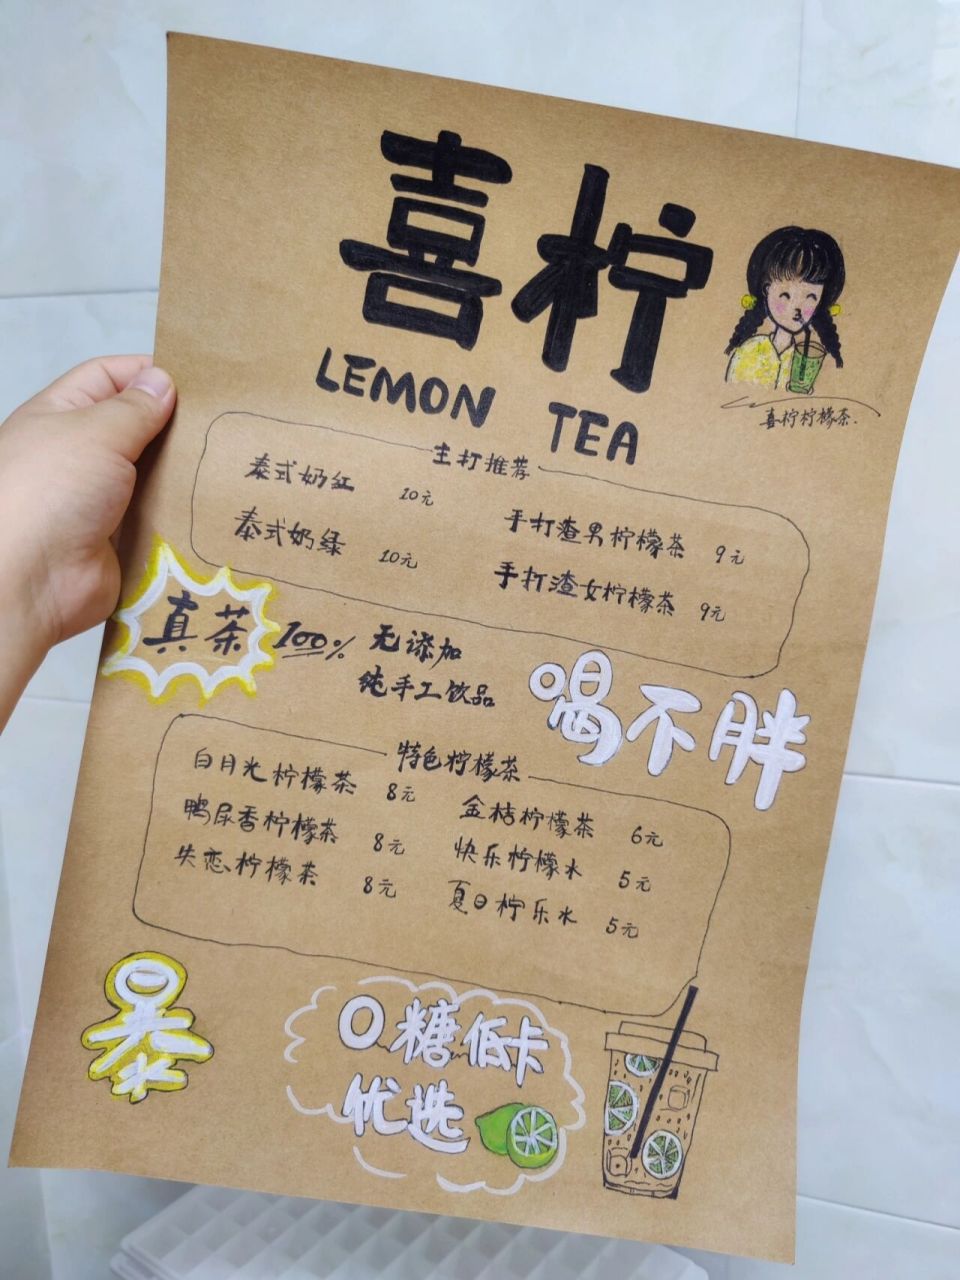 喜柠
LEMON TEA
喜柠柠檬茶.
主打推荐
泰式奶红 10元
泰式奶绿 10元
手打渣男柠檬茶 9元
手打渣女柠檬茶 9元
真茶 100% 无添加
纯手工饮品
喝不胖
特色柠檬茶
白月光柠檬茶 8元
鸭屎香柠檬茶 8元
失恋柠檬茶 8元
金桔柠檬茶 6元
快乐柠檬水 5元
夏日柠乐水 5元
暴
0糖低卡
优选